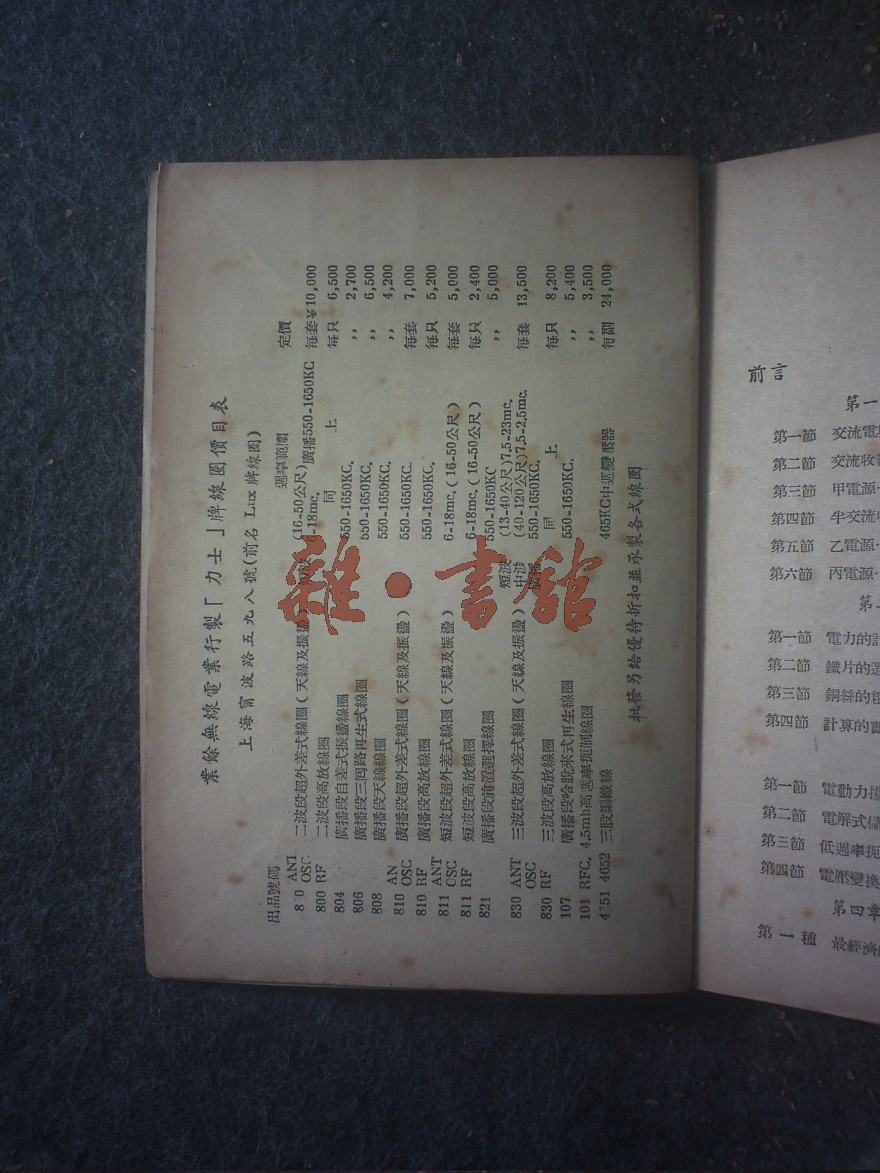 業餘無線電業行製「力士」牌線圈價目表
上海甯波路五九八號(前名 Lux 牌線圈)
出品號碼 週率範圍 定價
800 ANT OSC 二波段超外差式線圈(天線及振盪) (16-50公尺) 6-18mc. 廣播550-1650KC 每套 ¥10,000
800 RF 二波段高放線圈 同上 每只 6,500
804 廣播段自差式振盪線圈 550-1650KC. ,, 2,700
806 廣播段三回路再生式線圈 550-1650KC. ,, 6,500
808 廣播段天線線圈 550-1650KC. ,, 4,200
810 AN. OSC 廣播段超外差式線圈(天線及振盪) 550-1650KC. 每套 7,000
810 RF 廣播段高放線圈 550-1650KC. 每只 5,200
811 ANT OSC 短波段超外差式線圈(天線及振盪) 6-18mc.(16-50公尺) 每套 5,000
811 RF 短波段高放線圈 6-18mc.(16-50公尺) 每只 2,400
821 廣播段前置選擇線圈 550-1650KC ,, 5,000
830 ANT OSC 三波段超外差式線圈(天線及振盪) 短波(13-40公尺)7.5-23mc. 中波(40-120公尺)7.5-2.5mc. 廣播550-1650KC. 每套 13,500
830 RF 三波段高放線圈 同上 每只 8,200
107 廣播段哈脫來式再生線圈 550-1650KC. ,, 5,400
101 RFC. 4.5mh高週率扼制線圈 ,, 3,500
4651 4652 三股編織線 465KC中週變壓器 每副 24,000
批發另給優待折扣並承製各式線圈
雜·書館
前言
第一
第一節 交流電
第二節 交流收
第三節 甲電源·
第四節 半交流收
第五節 乙電源·
第六節 丙電源·
第二
第一節 電力的計
第二節 鐵片的選
第三節 銅絲的粗
第四節 計算的實
第一節 電動力揚
第二節 電解式儲
第三節 低週率扼
第四節 電壓變換
第四章
第一種 最經濟的